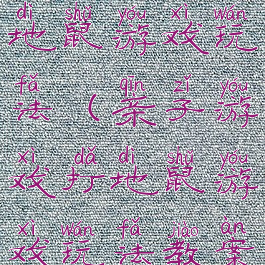 dì shǔ yóu xì wán
地鼠游戏玩
fǎ qīn zǐ yóu
法（亲子游
xì dǎ dì shǔ yóu
戏打地鼠游
xì wán fǎ jiào àn
戏玩法教案